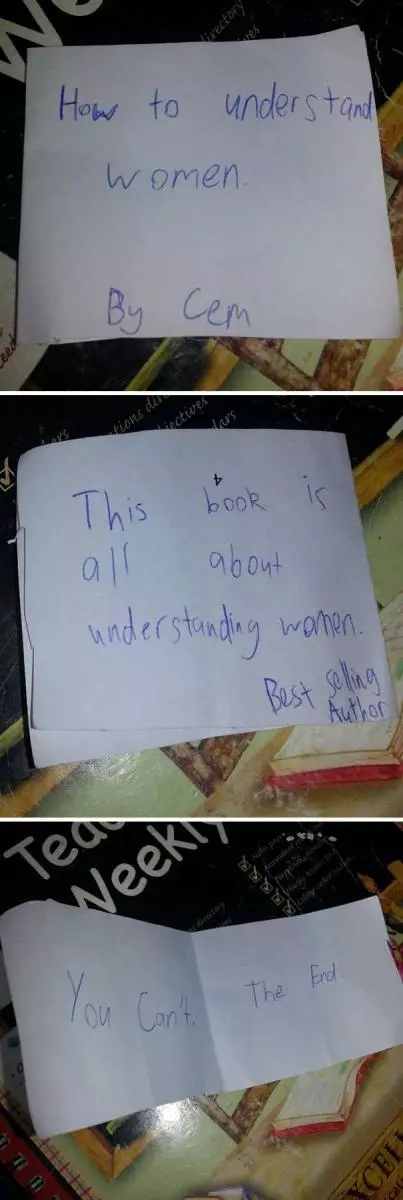 directory
How to understand
women.
By Cem
This book is
all about
understanding women.
Best selling
Author
Weekly
You Can't.
The End.